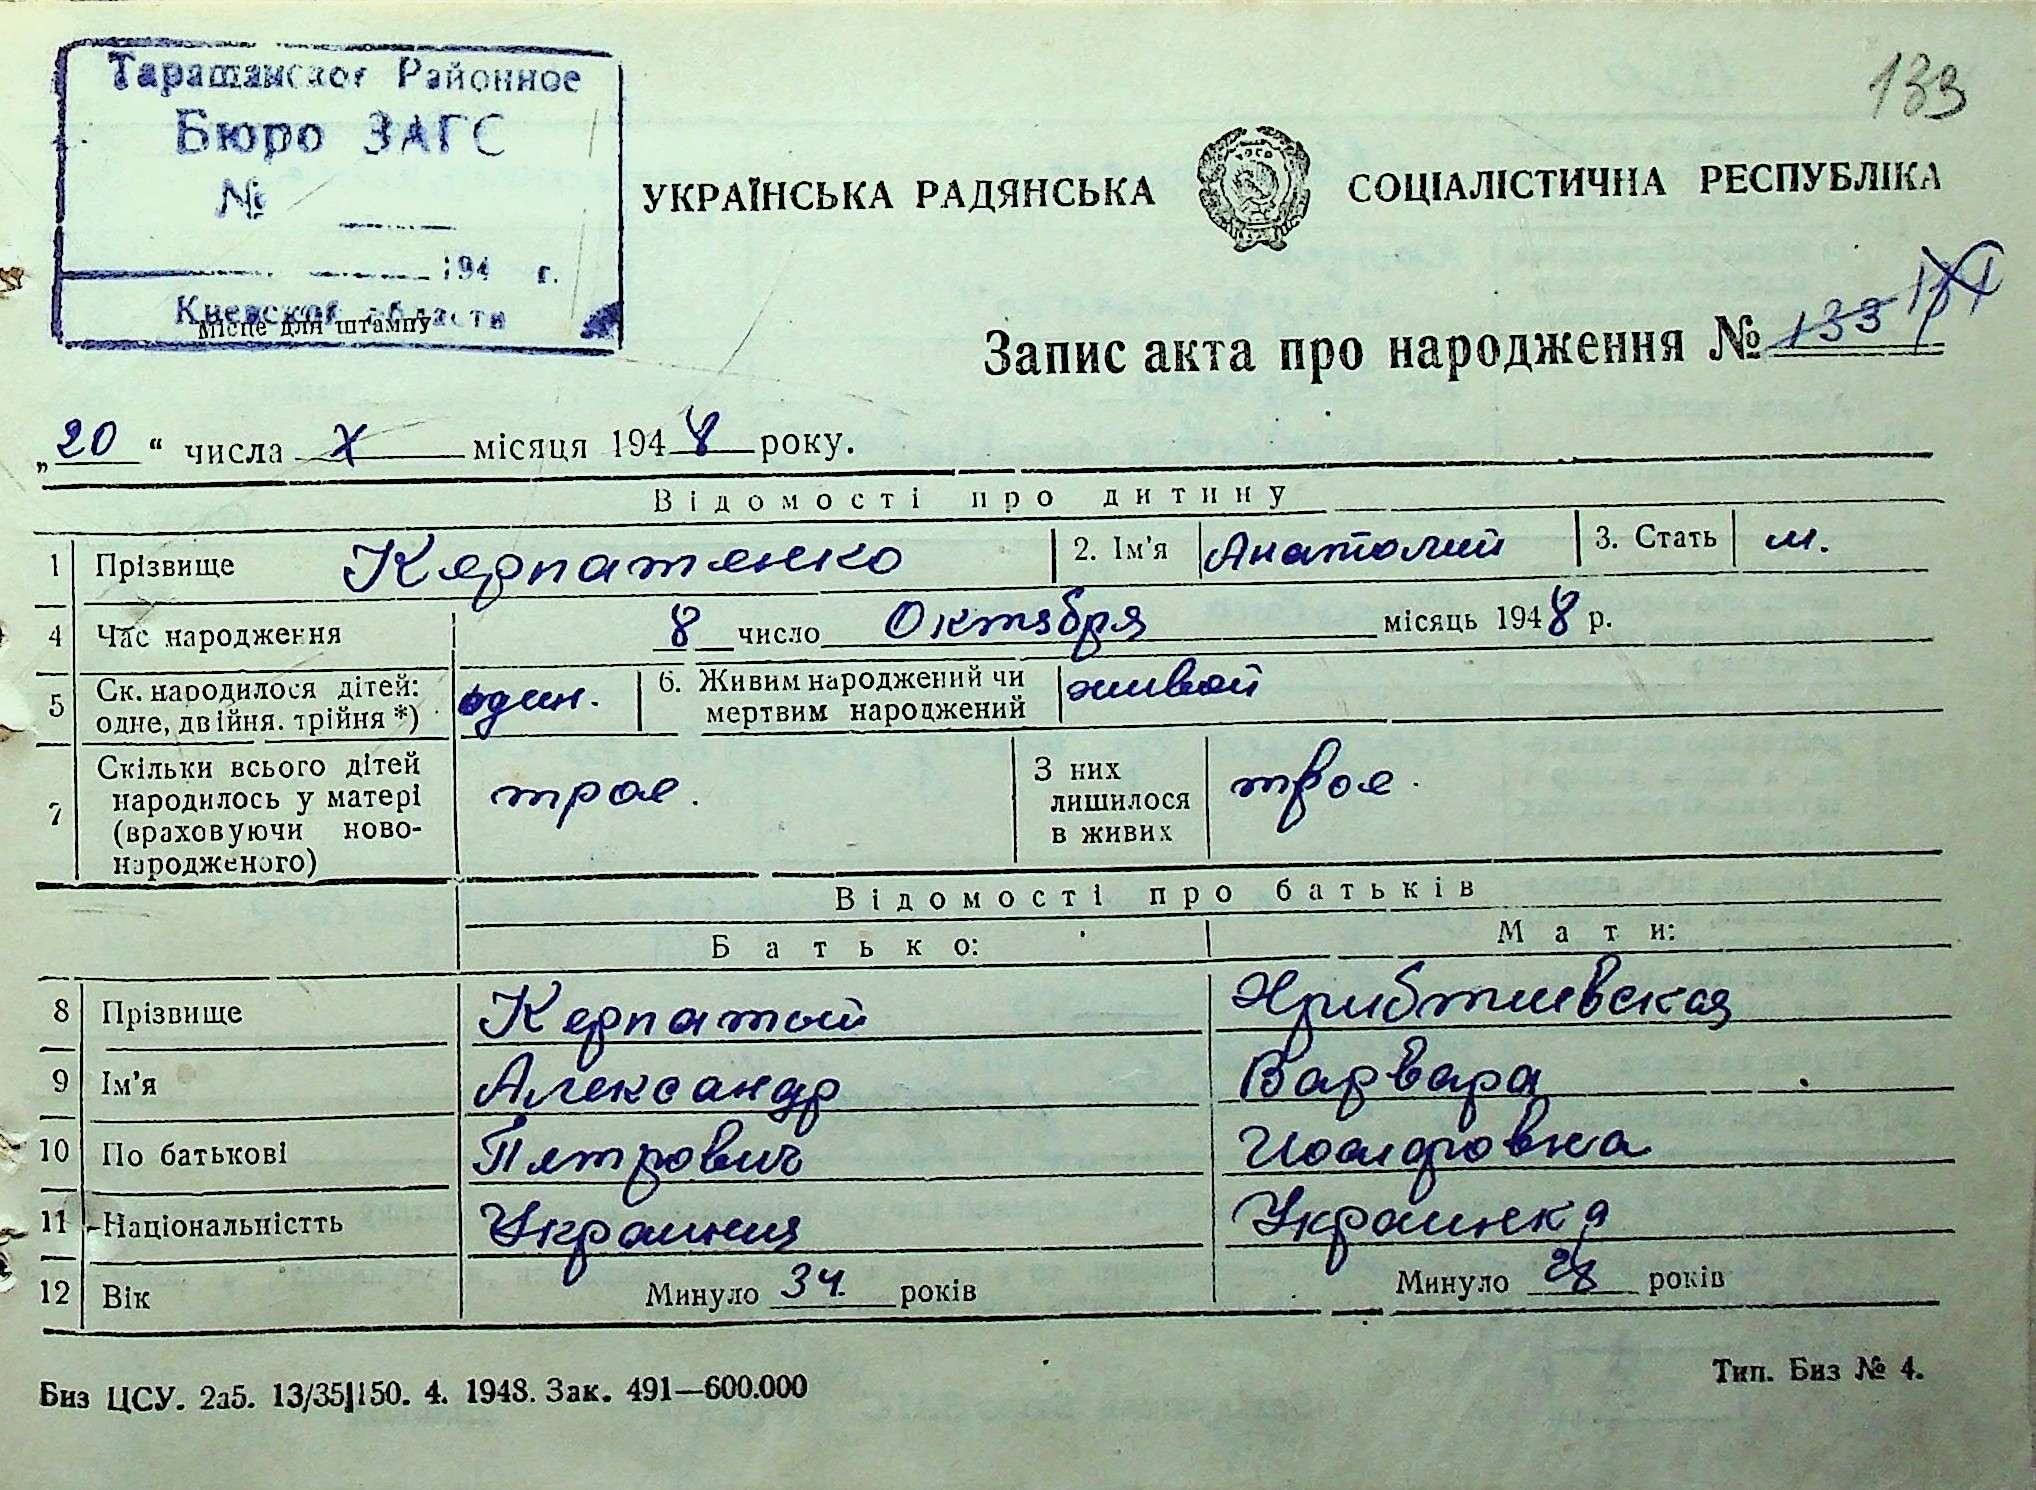 133
Таращанское Районное
Бюро ЗАГС
№
194 г.
Киевской области
Місце для штампу
УКРАЇНСЬКА РАДЯНСЬКА СОЦІАЛІСТИЧНА РЕСПУБЛІКА
Запис акта про народження № 133
„20“ числа X місяця 1948 року.
Відомості про дитину
1 Прізвище Керпатенко 2. Ім'я Анатолий 3. Стать м.
4 Час народження 8 число Октября місяць 1948 р.
5 Ск. народилося дітей: один. 6. Живим народжений чи живой
одне, двійня. трійня *) мертвим народжений
7 Скільки всього дітей трое. З них трое.
народилось у матері лишилося
(враховуючи ново- в живих
народженого)
Відомості про батьків
Батько: Мати:
8 Прізвище Керпатый
9 Ім'я Александр Варвара
10 По батькові Петрович
11 Національністть Украинец Украинка
12 Вік Минуло 34. років Минуло 28 років
Биз ЦСУ. 2а5. 13/35|150. 4. 1948. Зак. 491—600.000 Тип. Биз № 4.